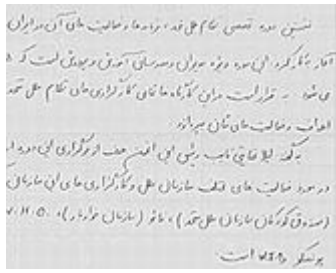 نخستین دوره تخصصی نظام ملل متحد، نهادها و فعالیت های آن در ایران
آغاز بکار کرد. این دوره ویژه مدیران و مدرسان آموزش و پرورش است که
می شود. قرار است در این کارگاه ها نمایندگان کارگزاری های نظام ملل متحد
اهداف و فعالیت های شان بپردازند.
به گفته لیلا فنایی نایب رئیس این انجمن هدف از برگزاری این دوره
در مورد فعالیت های مختلف سازمان ملل و کارگزاری های این سازمان
(صندوق کودکان سازمان ملل متحد)، فائو (سازمان خواربار)،
یونسکو و است.